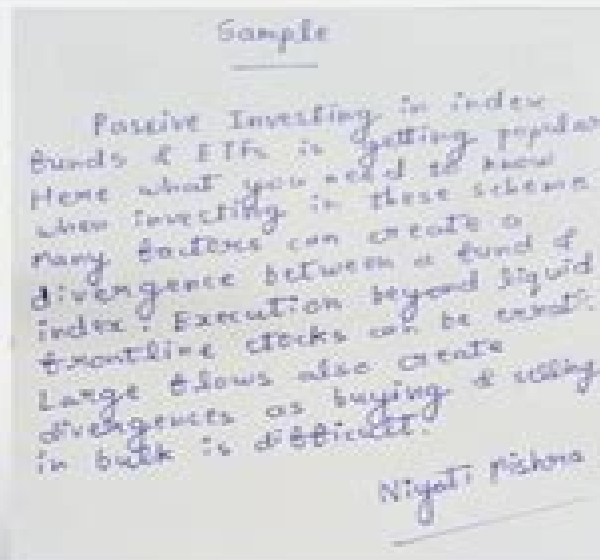 Sample
Passive Investing in index
funds & ETFs is getting popular
Here what you need to know
when investing in these scheme
Many factors can create a
divergence between a fund &
index. Execution beyond liquid
frontline stocks can be erratic.
Large flows also create
divergences as buying & selling
in bulk is difficult.
Niyati Mishra